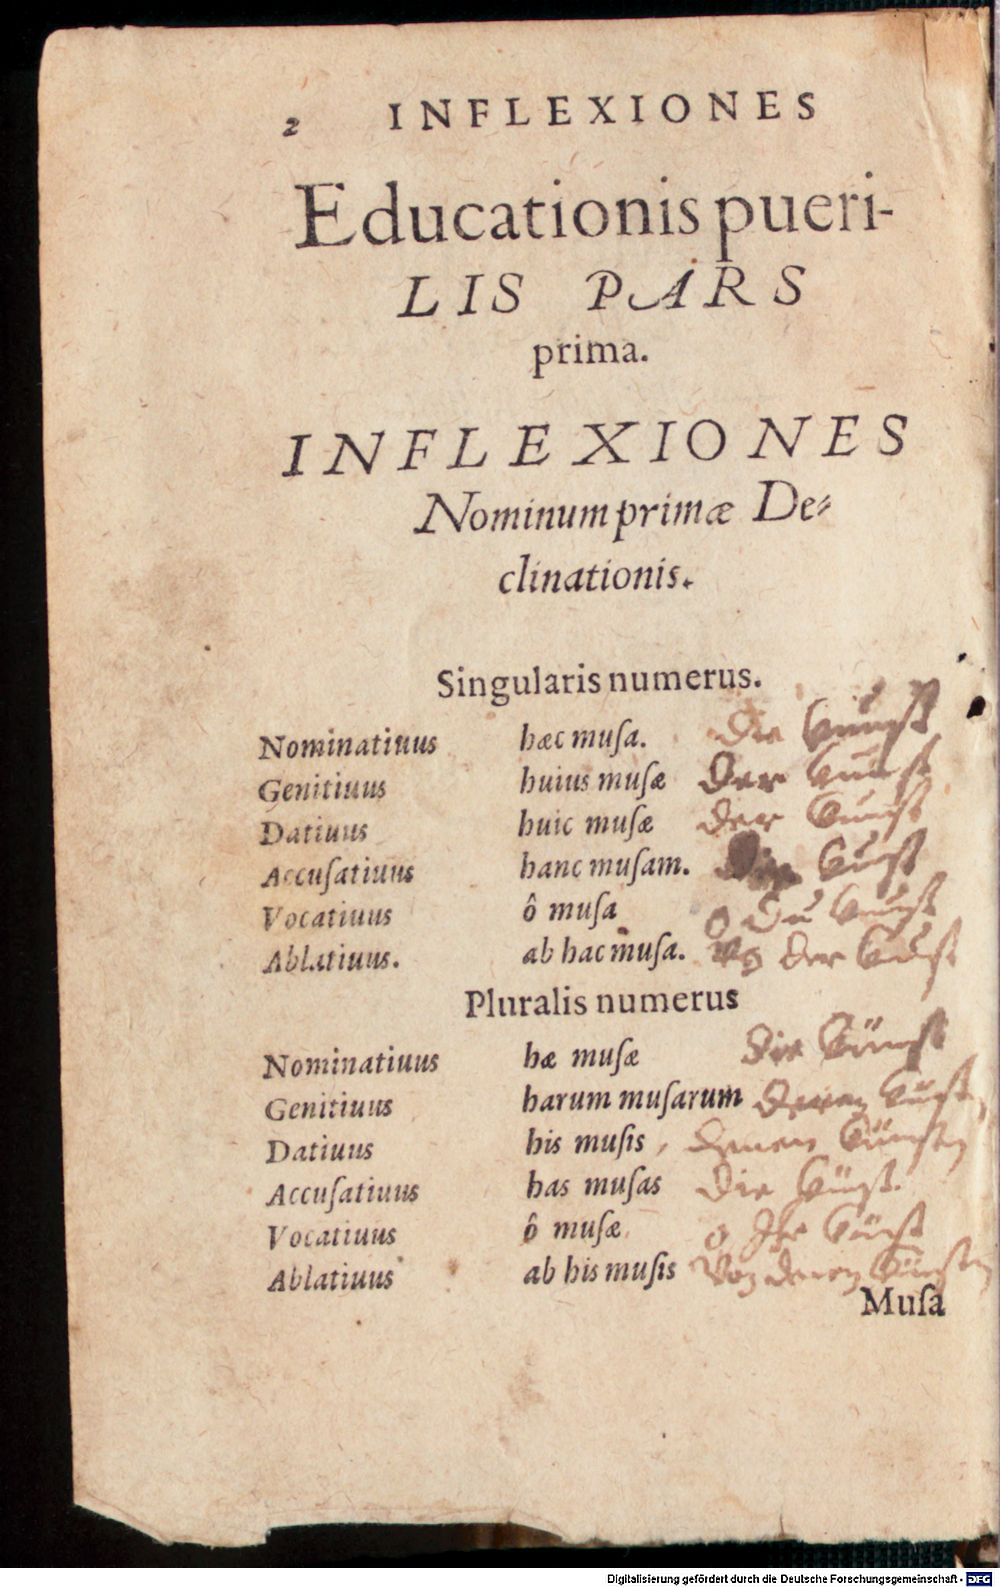 2 INFLEXIONES
Educationis pueri-
LIS PARS
prima.
INFLEXIONES
Nominum primæ De-
clinationis.
Singularis numerus.
Nominatiuus hæc muſa. Die kunst
Genitiuus huius muſæ der kunst
Datiuus huic muſæ der kunst
Accuſatiuus hanc muſam. Die kunst
Vocatiuus ô muſa o du kunst
Ablatiuus. ab hac muſa. der kunst
Pluralis numerus
Nominatiuus hæ muſæ die künst
Genitiuus harum muſarum
Datiuus his muſis denen künsten
Accuſatiuus has muſas die künst.
Vocatiuus ô muſæ o Ihr künst
Ablatiuus ab his muſis Von denen künsten
Muſa
Digitalisierung gefördert durch die Deutsche Forschungsgemeinschaft - DFG